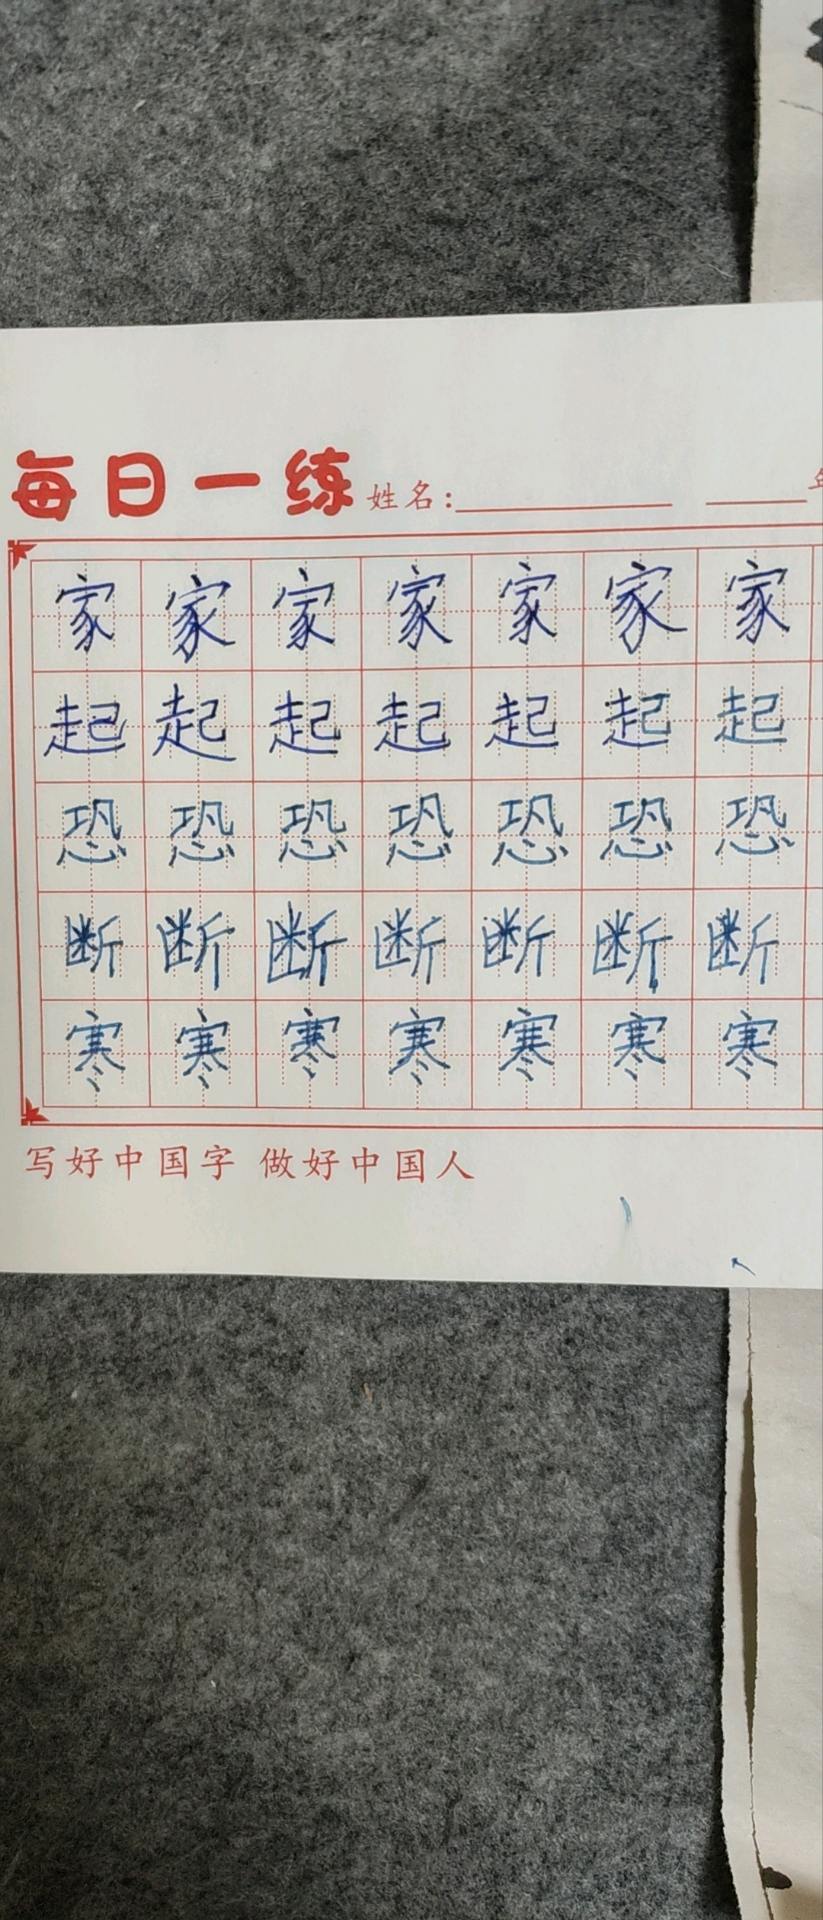 每日一练 姓名：
家家家家家家家
起起起起起起起
恐恐恐恐恐恐恐
断断断断断断断
寒寒寒寒寒寒寒
写好中国字 做好中国人